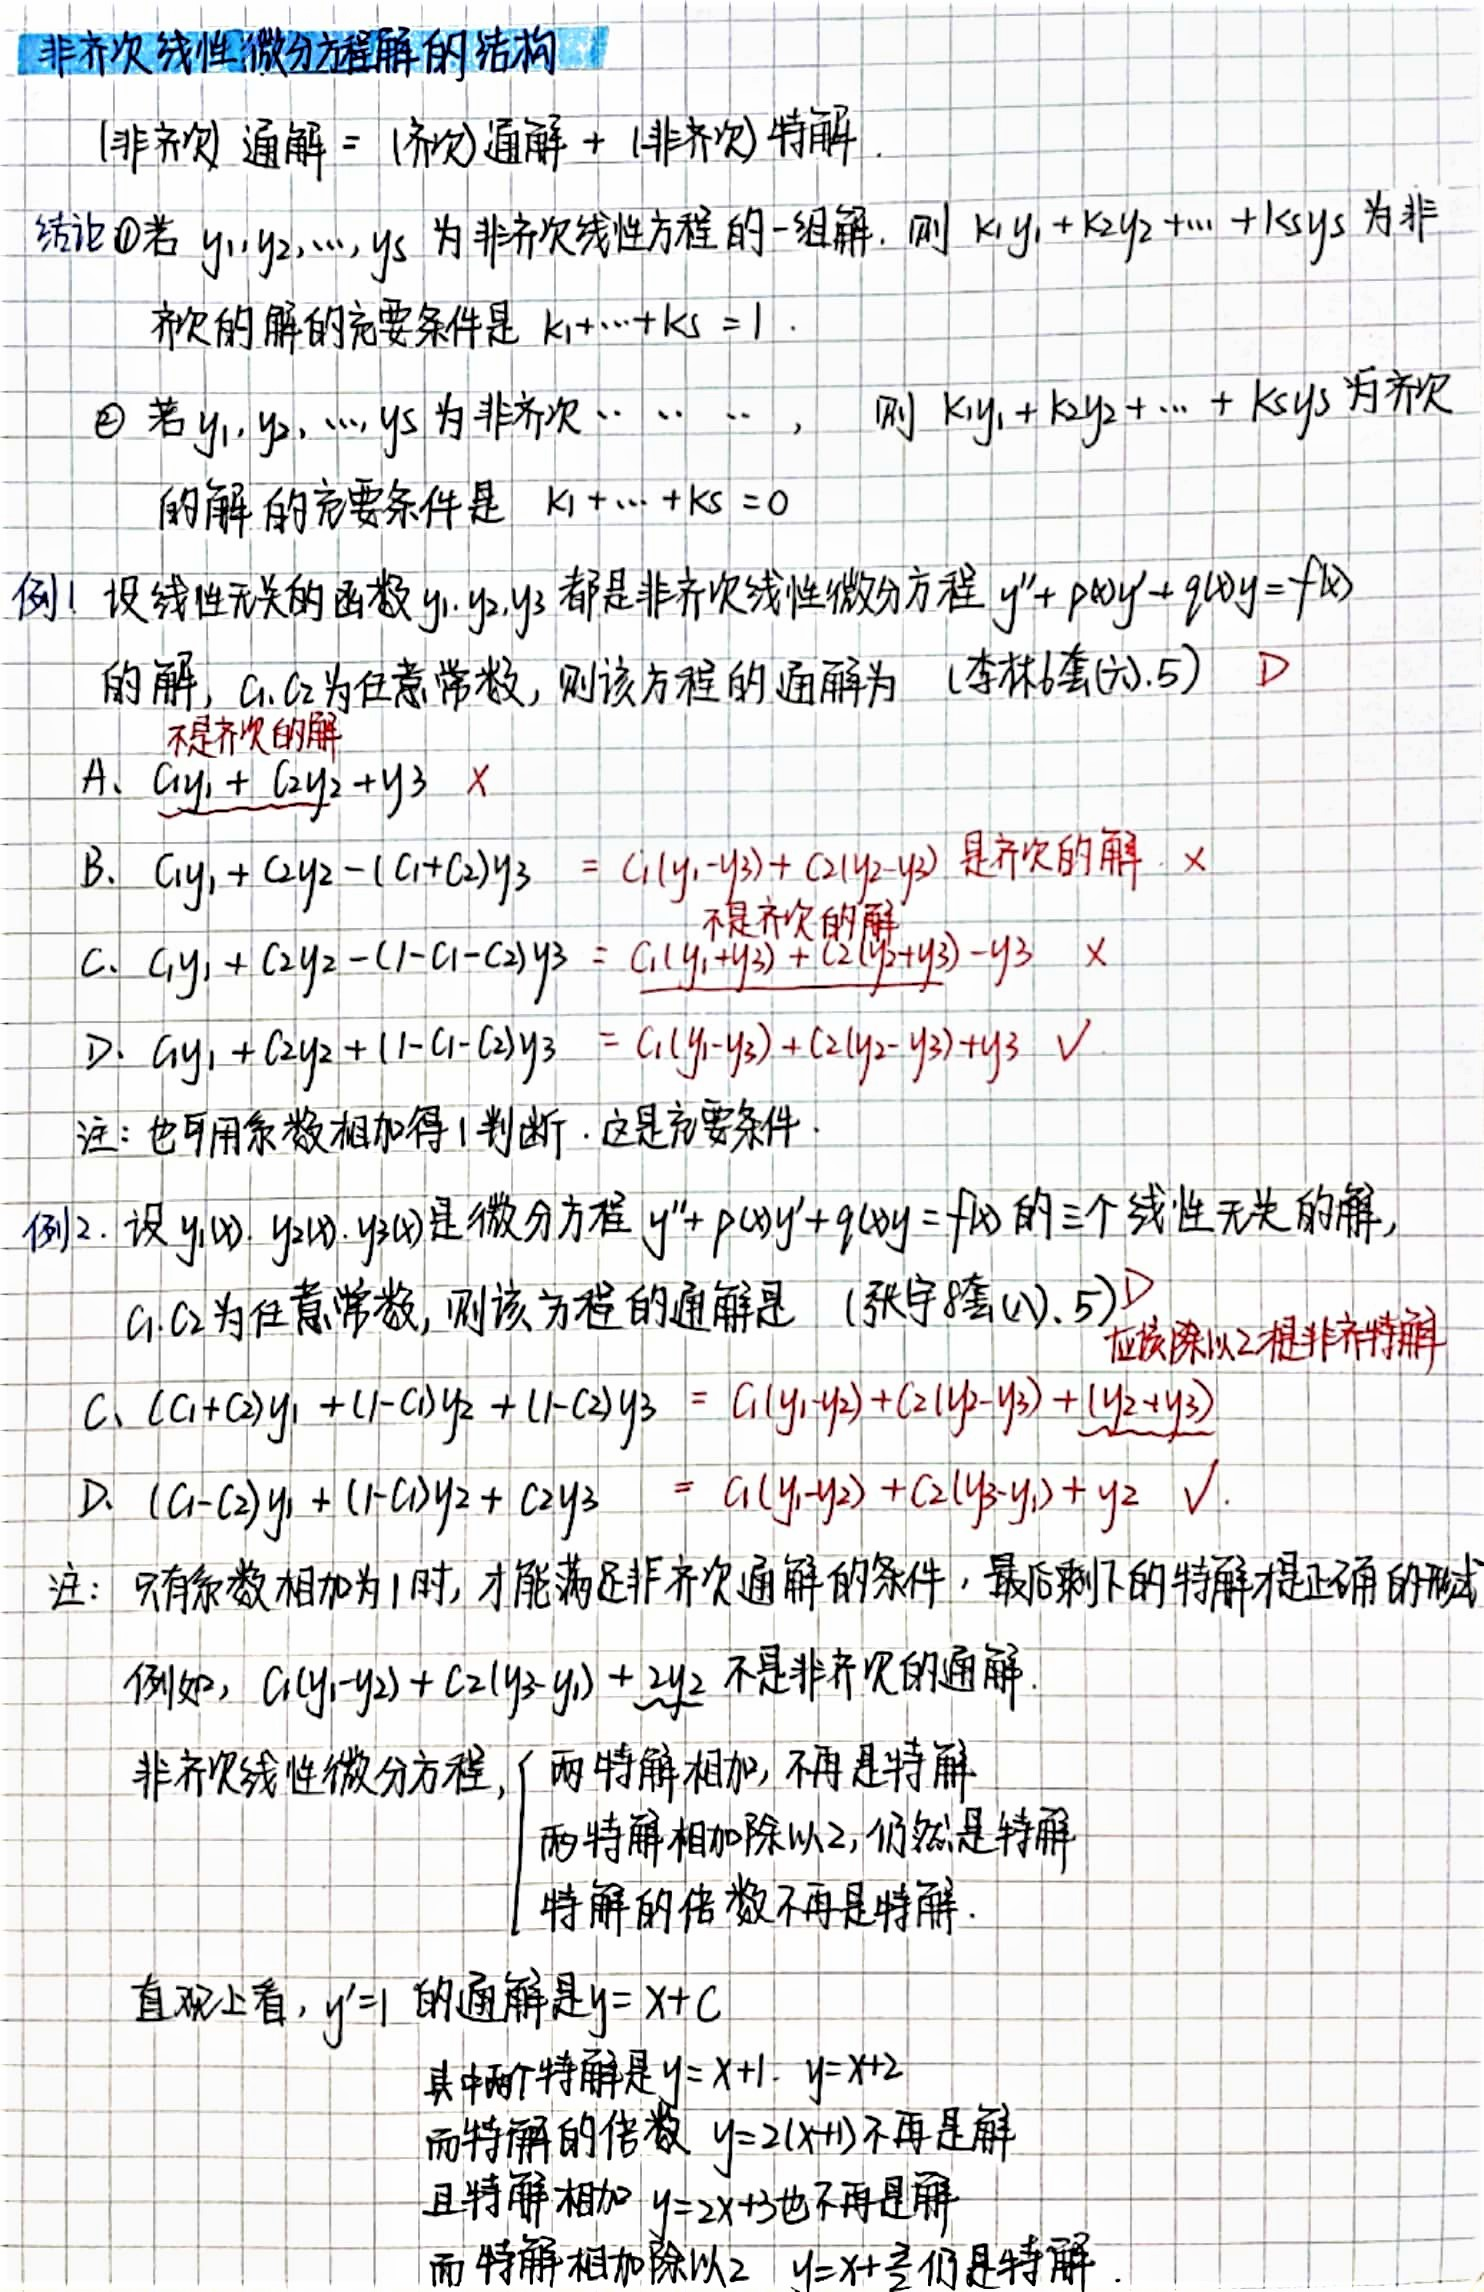 非齐次线性微分方程解的结构
(非齐次) 通解 = (齐次)通解 + (非齐次)特解.
结论①若 y1,y2,…,ys 为非齐次线性方程的一组解. 则 k1y1+k2y2+…+ksys 为非
齐次的解的充要条件是 k1+…+ks =1.
② 若y1, y2, …, ys为非齐次………, 则 k1y1+k2y2+…+ksys为齐次
的解的充要条件是 k1+…+ks=0
例1 设线性无关的函数y1.y2.y3 都是非齐次线性微分方程 y''+p(x)y'+q(x)y=f(x)
的解, C1.C2为任意常数, 则该方程的通解为 (李林6套(六).5) D
不是齐次的解
A、C1y1+C2y2+y3 ×
B、C1y1+C2y2-(C1+C2)y3 = C1(y1-y3)+C2(y2-y3) 是齐次的解. ×
不是齐次的解
C、C1y1+C2y2-(1-C1-C2)y3 = C1(y1+y3)+C2(y2+y3)-y3 ×
D、C1y1+C2y2+(1-C1-C2)y3 = C1(y1-y3)+C2(y2-y3)+y3 √
注: 也可用系数相加得1判断.这是充要条件.
例2. 设y1(x). y2(x). y3(x)是微分方程 y''+p(x)y'+q(x)y=f(x)的三个线性无关的解,
C1.C2为任意常数, 则该方程的通解是 (张宇8套(八).5) D
应该除以2才是非齐特解
C、(C1+C2)y1+(1-C1)y2+(1-C2)y3 = C1(y1-y2)+C2(y2-y3)+(y2+y3)
D、(C1-C2)y1+(1-C1)y2+C2y3 = C1(y1-y2)+C2(y3-y1)+y2 √.
注: 只有系数相加为1时, 才能满足非齐次通解的条件, 最后剩下的特解才是正确的形式
例如, C1(y1-y2)+C2(y3-y1)+2y2 不是非齐次的通解.
非齐次线性微分方程, { 两特解相加, 不再是特解
两特解相加除以2, 仍然是特解
特解的倍数不再是特解.
直观上看, y'=1 的通解是y=x+C
其中两个特解是y=x+1. y=x+2
而特解的倍数 y=2(x+1)不再是解
且特解相加 y=2x+3也不再是解
而特解相加除以2 y=x+3/2仍是特解.